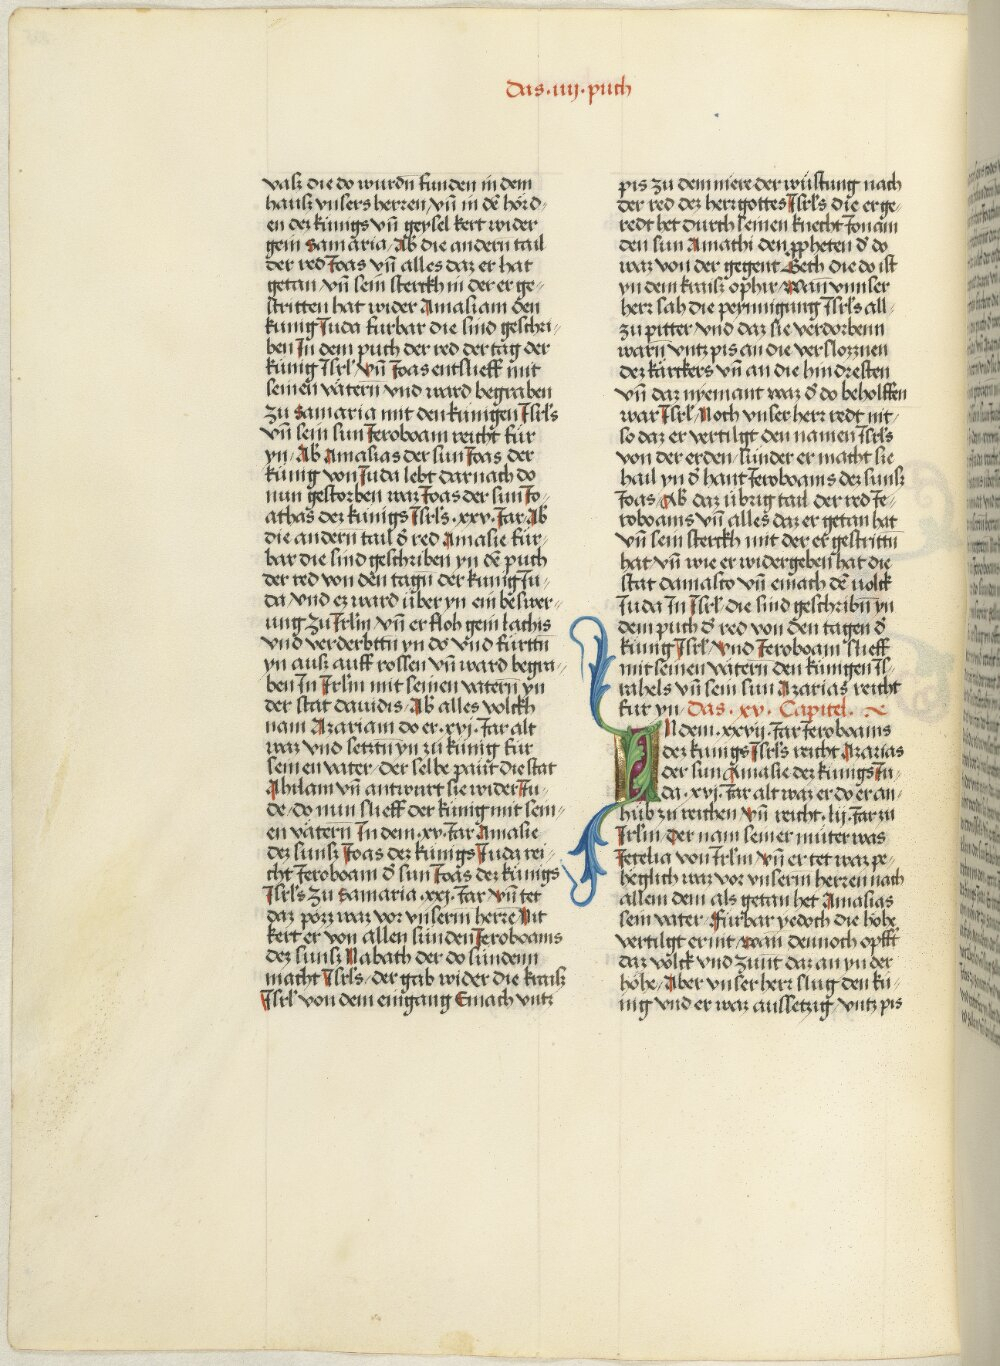 Das · iiij · puch
vasz die do wurdn̄ funden in dem
hausz vnsers herren / vn̄ in dē hörd=
en dez kunigs vn̄ geysel kert wider
gein Samaria / Ab die andern tail
der red Joas vn̄ alles daz er hat
getan / vn̄ sein sterckh in der er ge=
stritten hat wider Amasiam den
kunig Juda furbar die sind geschri=
ben In dem puch der red der tag der
künig Isrl̄ / Vn̄ Joas entslieff mit
seinen vätern vnd ward begraben
zu Samaria mit den kunigen Isrl̄s
vn̄ sein sun Jeroboam reicht für
yn / Ab Amasias der sun Joas der
künig von Juda lebt darnach do
nun gestorben waz Joas der sun Jo=
athas dez kunigs Isrl̄s · xxv · Jar / Ab
die andern tail d̄ red Amasie für=
bar die sind geschriben yn dē puch
der red von den tagn̄ der kunig Ju=
da / vnd ez ward über yn ein beswer=
ung zu Jrlm̄ vn̄ er floh gein lachis
vnd verderbttn̄ yn do vnd fürttn̄
yn ausz auff rossen vn̄ ward begra=
ben In Jrlm̄ mit seinen vatern̄ yn
der stat dauidis / Ab alles volckh
nam Azariam do er · xvj · Jar alt
waz vnd setztn̄ yn zu künig für
seinen vater / der selbe paut̄ die stat
Ahilam vn̄ antwurt sie wider Ju=
de / do nun slieff der künig mit sein=
en vätern̄ In dem · xv · Jar Amasie
dez sunsz Joas dez künigs Juda rei=
cht Jeroboam d̄ sun Joas dez künigs
Isrl̄s zu Samaria · xxj · Jar / Vn̄ tet
daz pözz waz vor vnserm herre Nit
kert er von allen sünden Jeroboams
dez sunsz Nabath der do sündenn
macht Isrl̄s / der gab wider die kraisz
Isrl̄ von dem eingang Emach vntz
pis zu dem mere der wüstung nach
der red dez herz gottes Isrl̄s die er ge=
redt het durch seinen knecht Jonam
den sun Amathi den ꝓpheten d̄ do
waz von der gegent Geth die do ist
yn dem kraisz ophir / Wan̄ vnnser
herz sah die peynnigung Isrl̄s all=
zu pitter vnd daz sie verdorbenn
warn̄ vntz pis an die verslozznen
dez kärckers vn̄ an die hindresten
vn̄ daz nyemant waz d̄ do beholffen
war Isrl̄ / Noch vnser herz redt nit
so daz er vertilgt den namen Isrl̄s
von der erden / sunder er macht sie
hail yn d̄ hant Jeroboams dez sunsz
Joas / Ab daz übrig tail der red Je=
roboams vn̄ alles daz er getan hat
vn̄ sein sterckh mit der er gestrittn̄
hat vn̄ wie er widergeben hat die
stat damasco vn̄ emach dē volck
Juda In Isrl̄ die sind geschribn̄ yn
dem puch d̄ red von den tagen d̄
künig Isrl̄ / vnd Jeroboam slieff
mit seinen vätern den künigen Is=
rahels vn̄ sein sun Azarias reicht
fur yn Das · xv · Capitel ·
INdem · xxvij · Jar Jeroboams
dez kunigs Isrl̄s reicht Azarias
der sun Amasie dez kunigs Ju=
da · xvj · Jar alt waz er do er an=
hub zu reichen / vn̄ reicht · lij · Jar zu
Jrlm̄ / Der nam seiner müter was
Jecelia von Jrlm̄ / vn̄ er tet waz pe=
heglich waz vor vnserm herren nach
allem dem als getan het Amasias
sein vater / Fürbar yedoch die höhe
vertilgt er nit / wan̄ dennoch opfft̄
daz völck vnd zünt daz an yn der
höhe / Aber vnser herz slug den kü=
nig vnd er waz aussetzig / vntz pis